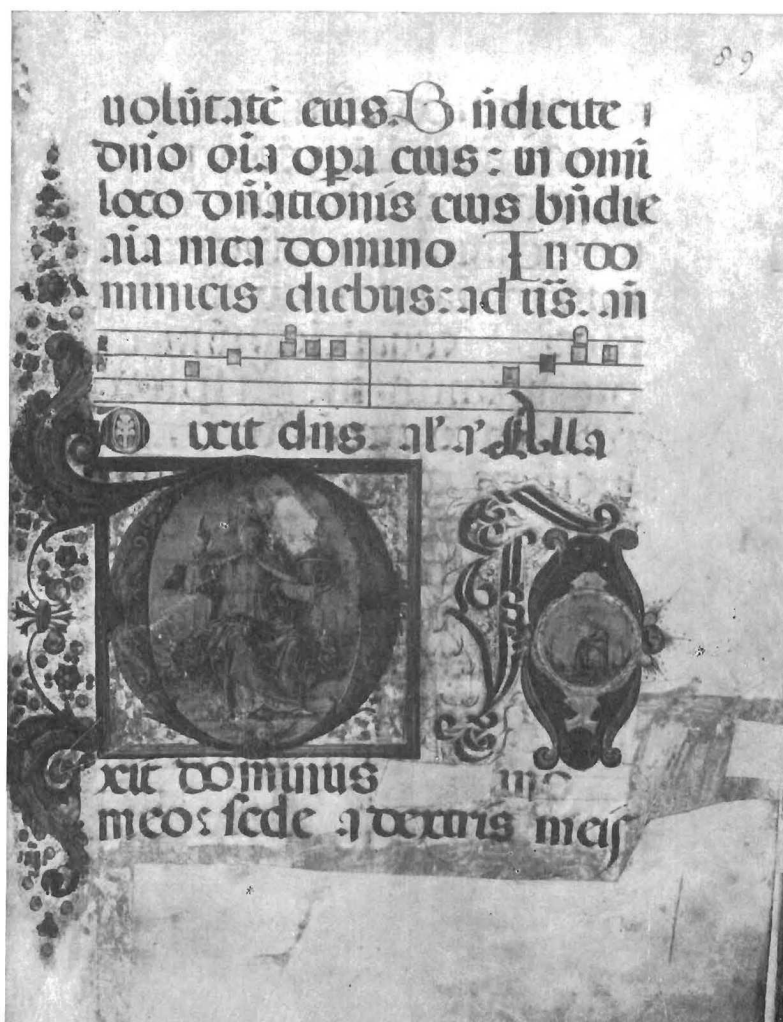 89
uolūtatē eius. B n̄dicite
dn̄o oīa opa eius: in omī
loco dn̄ationis eius bn̄dic
aīa mea domino In do
minicis diebus: ad us̄. an̄
Dixit dn̄s. Alła
D
ixit dominus mo
meo: sede a dextris meis